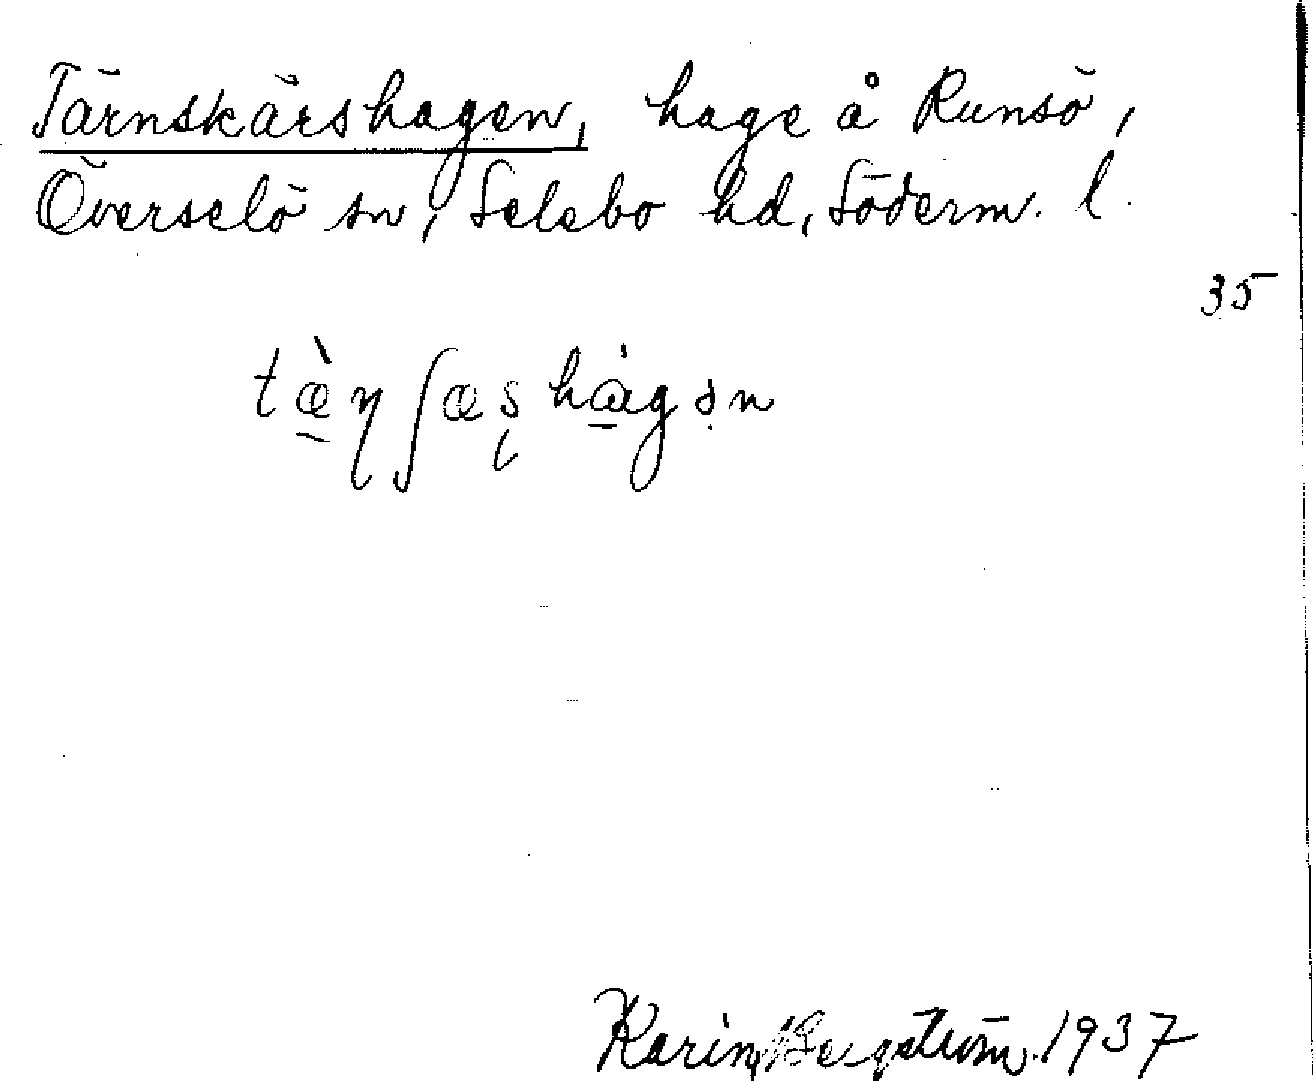 Tärnskärshagen, hage å Runsö,
Överselö sn, Selebo hd, Söderm. l.
35
tæ̀ɳʃæʂhàgən
Karin Bergström. 1937